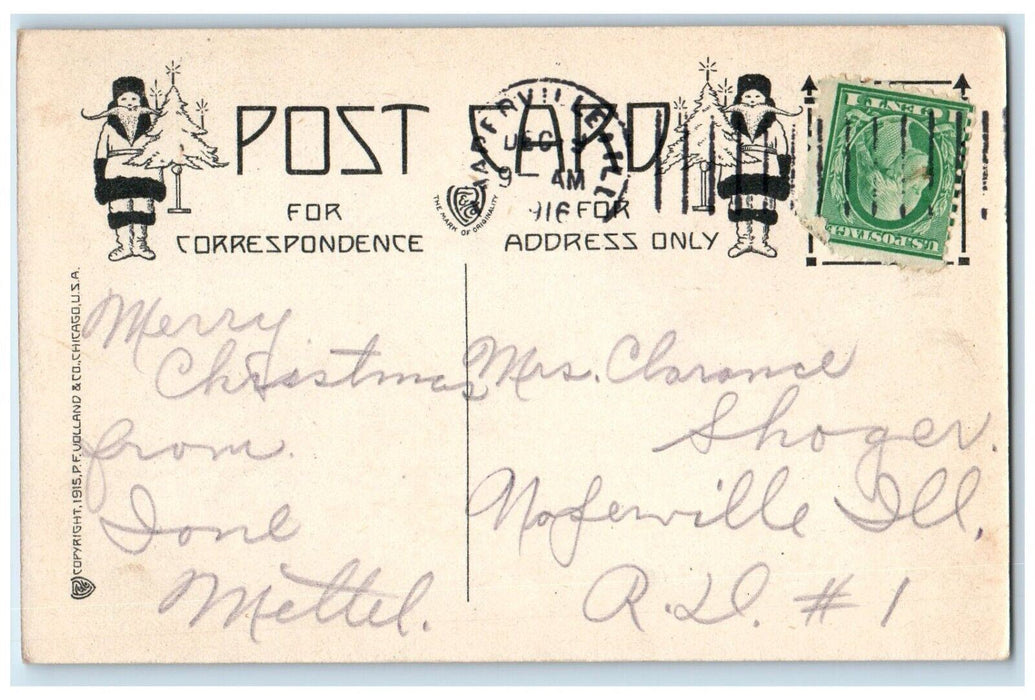 POST CARD
FOR CORRESPONDENCE
FOR ADDRESS ONLY
THE MARK OF ORIGINALITY
NAPERVILLE, ILL.
DEC
9 AM
1916
1 CENT 1
U.S. POSTAGE
COPYRIGHT, 1915, P.F. VOLLAND & CO., CHICAGO, U.S.A.
Merry
Christmas
from
Ione
Mettel.
Mrs. Clarance
Shoger.
Naferville Ill.
R.D. # 1